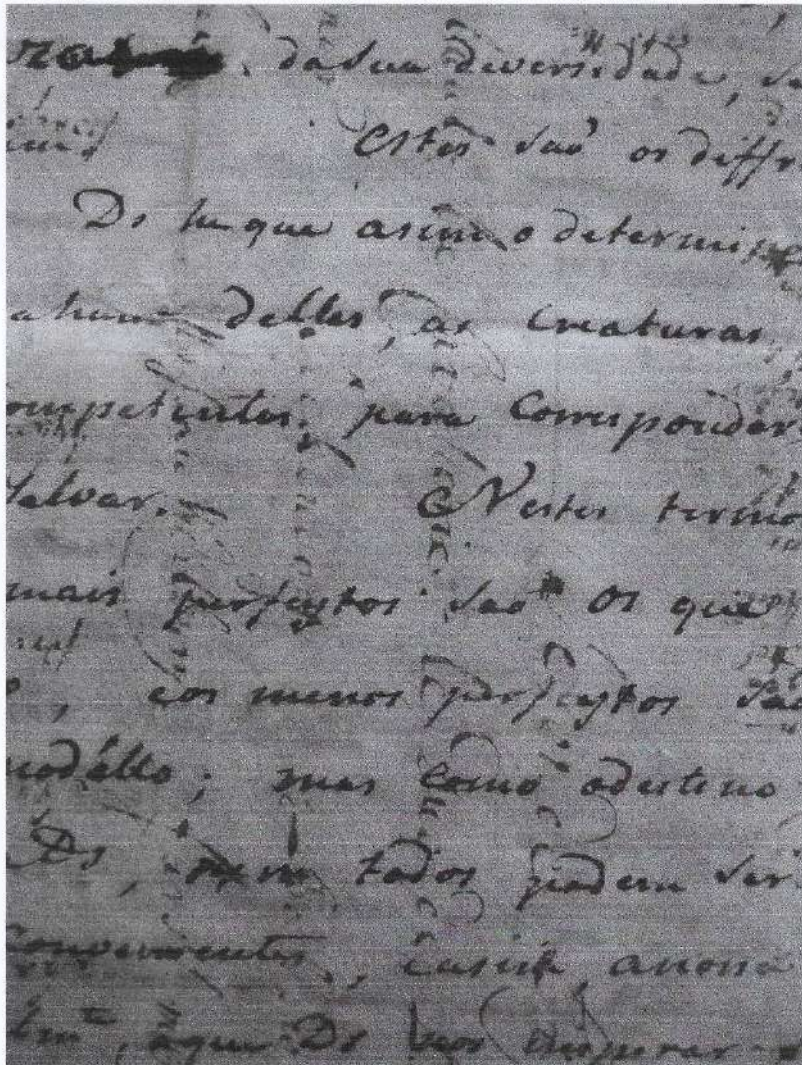 da sua diversidade, se
Estes saõ os diffr
Ds he que asim o determin
a hum delles, as Creaturas
ompetentes, para Corresponder
salvar. Nestes termo
mais perfeytos saõ os que
, e os menos perfeytos saõ
modéllo; mas como o destino
Ds, nem todos podem ser
Convenientes, e asim, a nossa
a que Ds nos